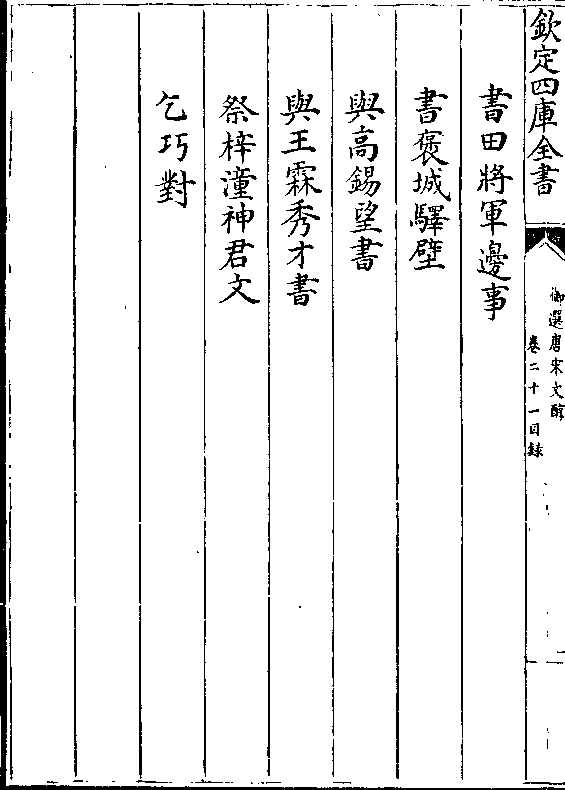 欽定四庫全書
御選唐宋文醇
卷二十一目録
書田將軍邊事
書褒城驛壁
與高錫望書
與王霖秀才書
祭梓潼神君文
乞巧對